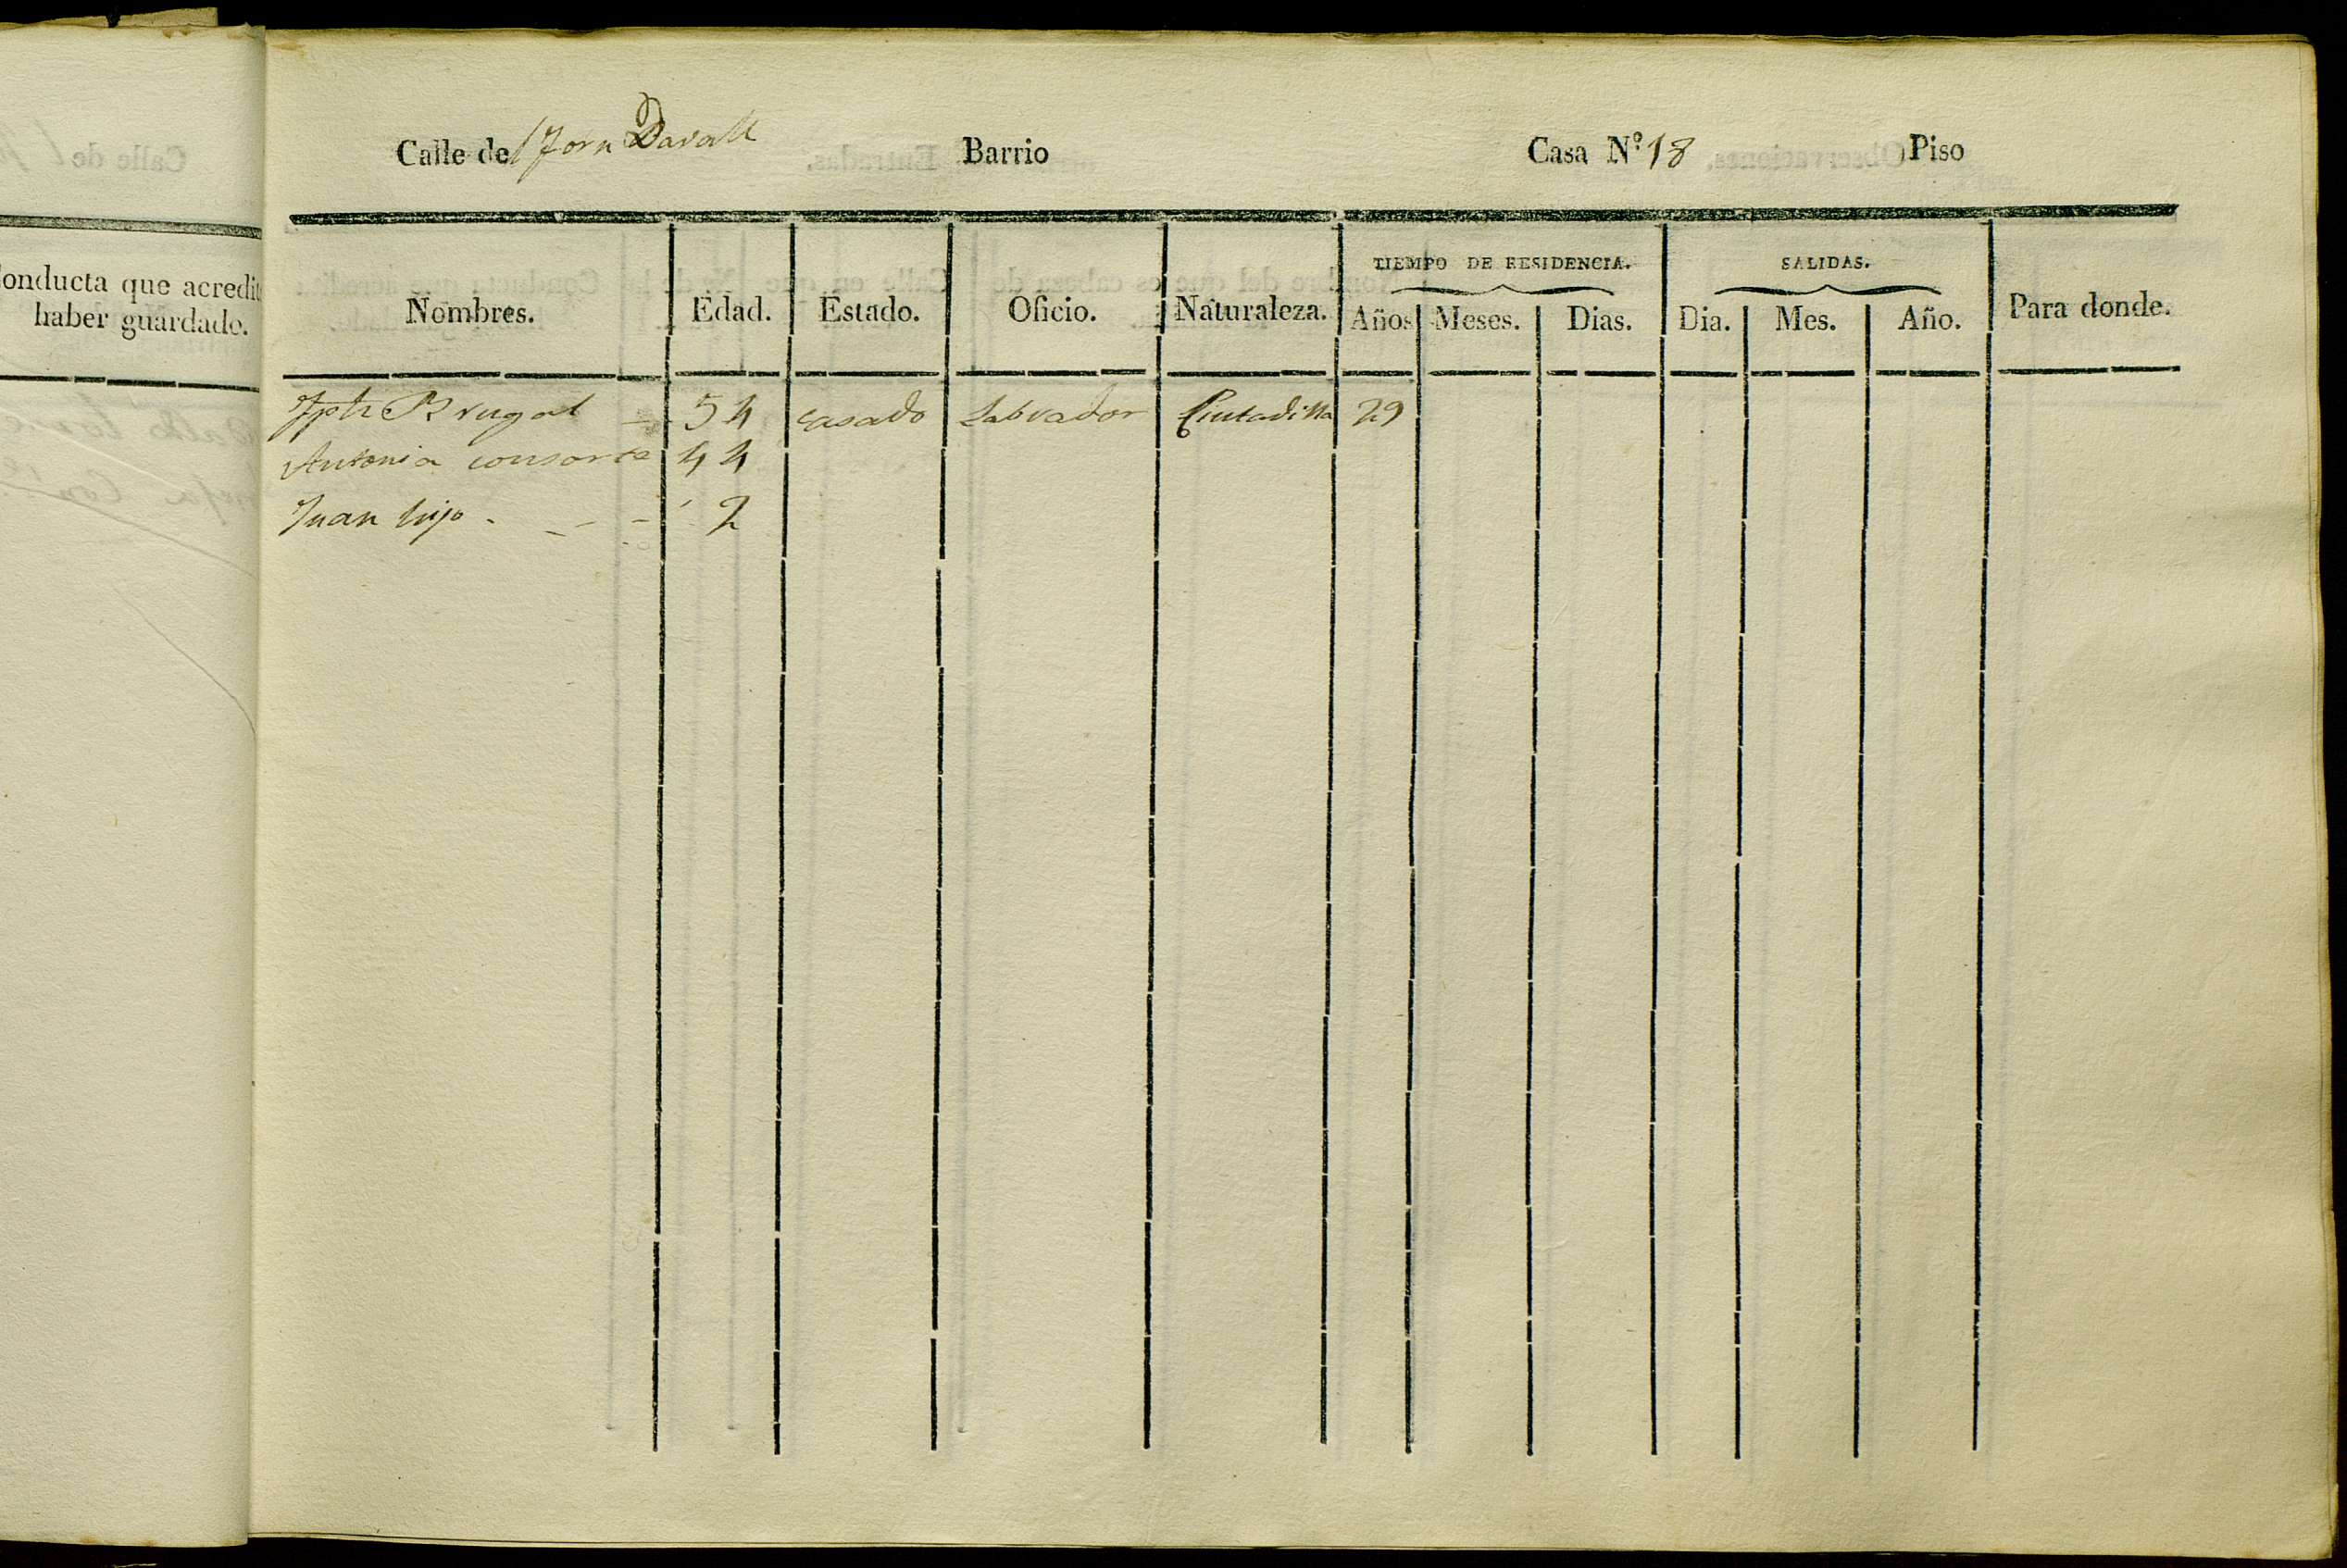 onducta que acredit
haber guardado.
Calle del Forn Davall Barrio Casa N.º 18 Piso
TIEMPO DE RESIDENCIA. SALIDAS.
Nombres. Edad. Estado. Oficio. Naturaleza. Años Meses. Dias. Dia. Mes. Año. Para donde.
Jph Brugal 54 casado Labrador Ciutadilla 29
Antonia consorte 44
Juan hijo - - - 2